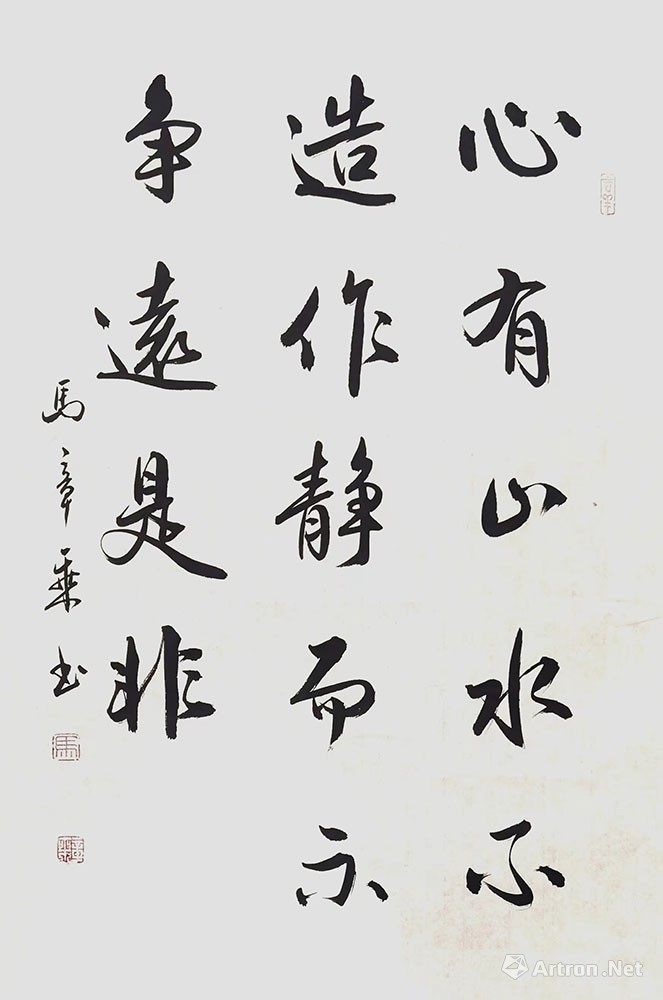 心有山水不
造作静而不
争遠是非
馬章乘书
馬
Artron.Net